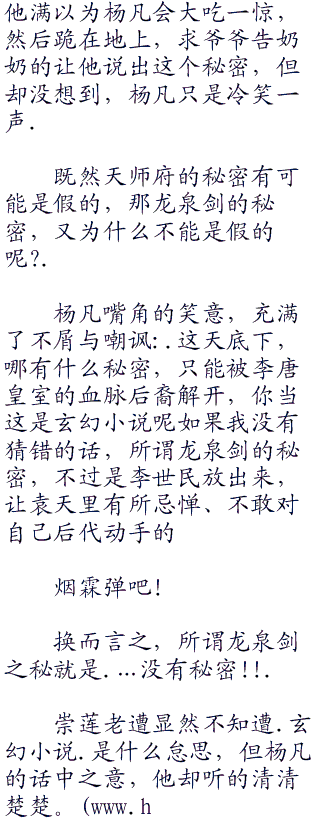 他满以为杨凡会大吃一惊，
然后跪在地上，求爷爷告奶
奶的让他说出这个秘密，但
却没想到，杨凡只是冷笑一
声.
既然天师府的秘密有可
能是假的，那龙泉剑的秘
密，又为什么不能是假的
呢?.
杨凡嘴角的笑意，充满
了不屑与嘲讽:.这天底下，
哪有什么秘密，只能被李唐
皇室的血脉后裔解开，你当
这是玄幻小说呢如果我没有
猜错的话，所谓龙泉剑的秘
密，不过是李世民放出来，
让袁天里有所忌惮、不敢对
自己后代动手的
烟霖弹吧!
换而言之，所谓龙泉剑
之秘就是.…没有秘密!!.
崇莲老遭显然不知遭.玄
幻小说.是什么怠思，但杨凡
的话中之意，他却听的清清
楚楚。(www.h